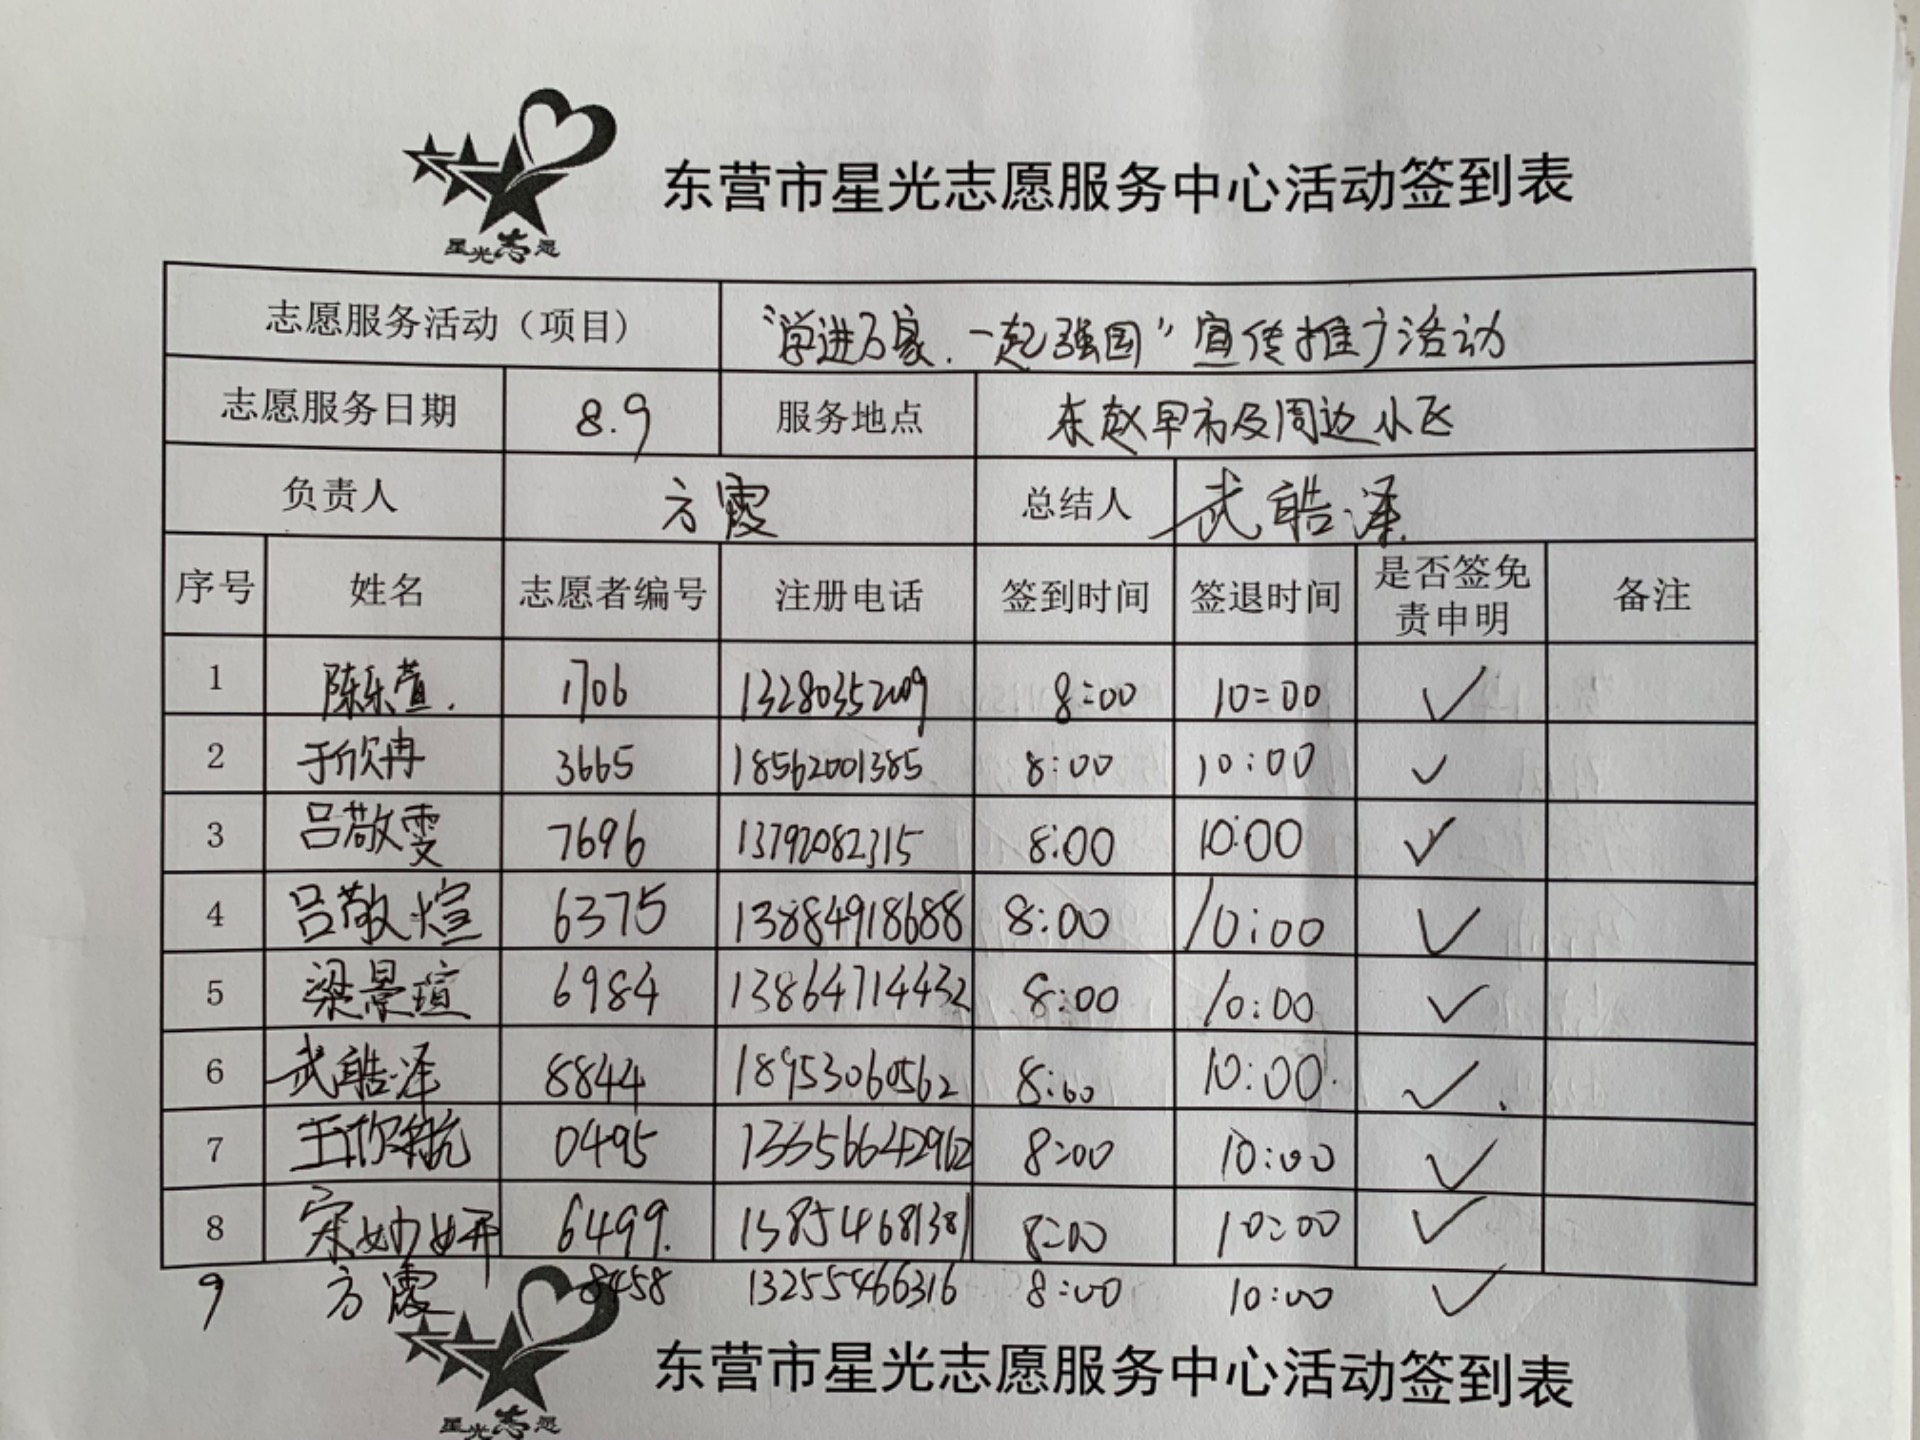 东营市星光志愿服务中心活动签到表
星光志愿
志愿服务活动（项目） “学进万家.一起强国”宣传推广活动
志愿服务日期 8.9 服务地点 东赵早市及周边小区
负责人 方霞 总结人 武皓泽
序号 姓名 志愿者编号 注册电话 签到时间 签退时间 是否签免责申明 备注
1 陈乐萱. 1706 13280352009 8:00 10:00 ✓
2 于欣冉 3665 18562001385 8:00 10:00 ✓
3 吕敬雯 7696 13792082315 8:00 10:00 ✓
4 吕敬煊 6375 13884918688 8:00 10:00 ✓
5 梁景瑄 6984 13864714432 8:00 10:00 ✓
6 武皓泽 8844 18953060562 8:00 10:00. ✓
7 王欣航 0495 13356642962 8:00 10:00 ✓
8 宋妙妍 6499. 13854681381 8:00 10:00 ✓
9 方霞 8458 13255466316 8:00 10:00 ✓
东营市星光志愿服务中心活动签到表
星光志愿